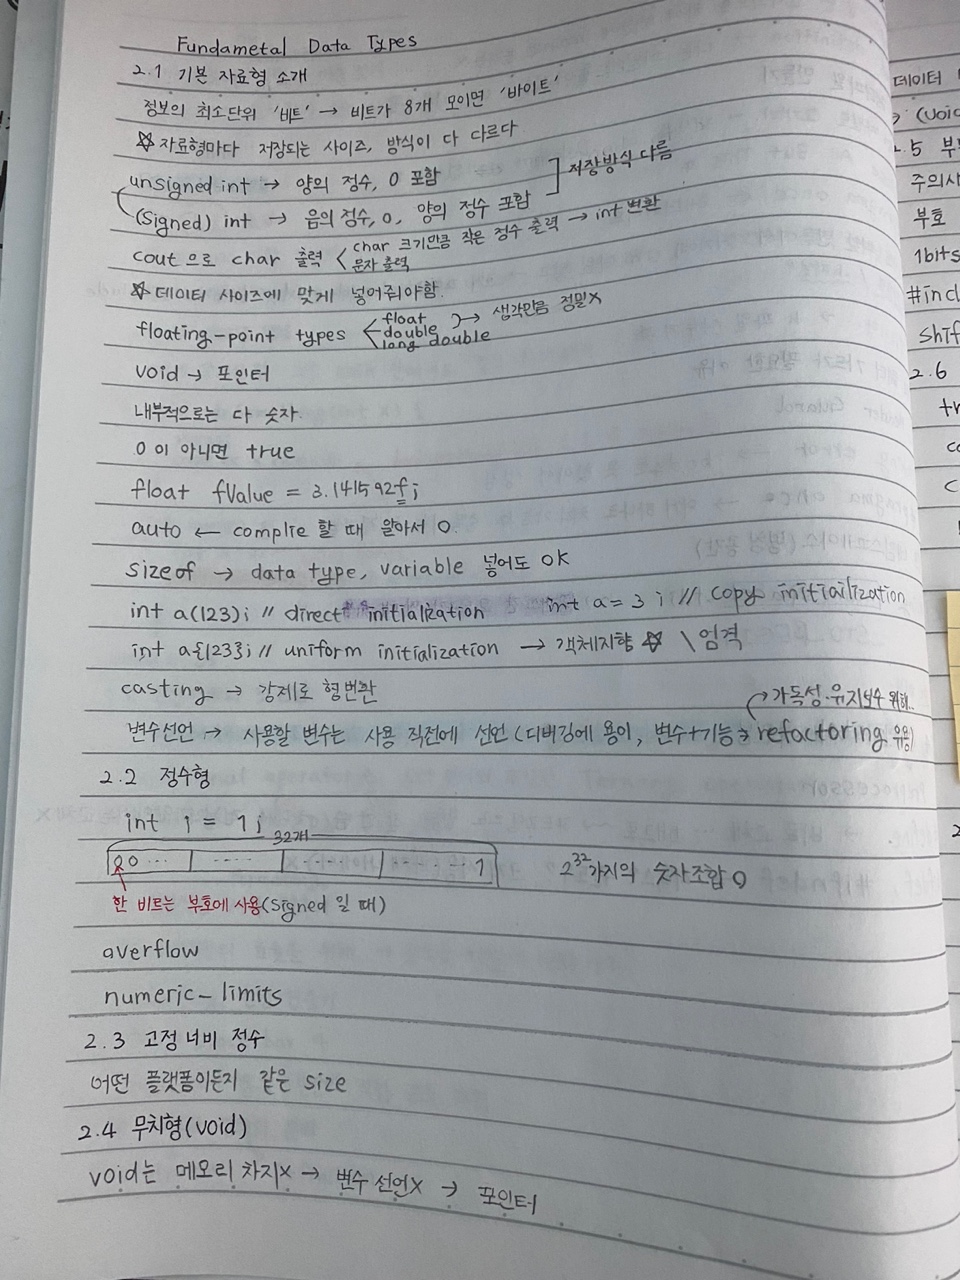 Fundametal Data Types
2.1 기본 자료형 소개
정보의 최소단위 '비트' → 비트가 8개 모이면 '바이트'
☆ 자료형마다 저장되는 사이즈, 방식이 다 다르다
unsigned int → 양의 정수, 0 포함
] 저장방식 다름
(Signed) int → 음의 정수, 0, 양의 정수 포함
cout 으로 char 출력 < char 크기만큼 작은 정수 출력 → int 변환
문자 출력
☆ 데이터 사이즈에 맞게 넣어줘야함.
floating-point types < float
double → 생각만큼 정밀X
long double
void → 포인터
내부적으로는 다 숫자.
0 이 아니면 true
float fValue = 3.141592f;
auto ← complie 할 때 알아서 O.
sizeof → data type, variable 넣어도 OK
int a(123); // direct initialization int a = 3 ; // copy initiailization
int a{123}; // uniform initialization → 객체지향 ☆ \ 엄격
casting → 강제로 형변환
→ 가독성·유지보수 위해..
변수선언 → 사용할 변수는 사용 직전에 선언 (디버깅에 용이, 변수+기능 → refactoring 유용)
2.2 정수형
int i = 1;
32개
0 0 ... ..... ..... ..... 1 2^32가지의 숫자조합 O
한 비트는 부호에 사용(signed 일 때)
overflow
numeric_limits
2.3 고정 너비 정수
어떤 플랫폼이든지 같은 size
2.4 무치형(void)
void는 메모리 차지X → 변수 선언X → 포인터
데이터
(void
2.5 부
주의사
부호
1bits
#incl
shif
2.6